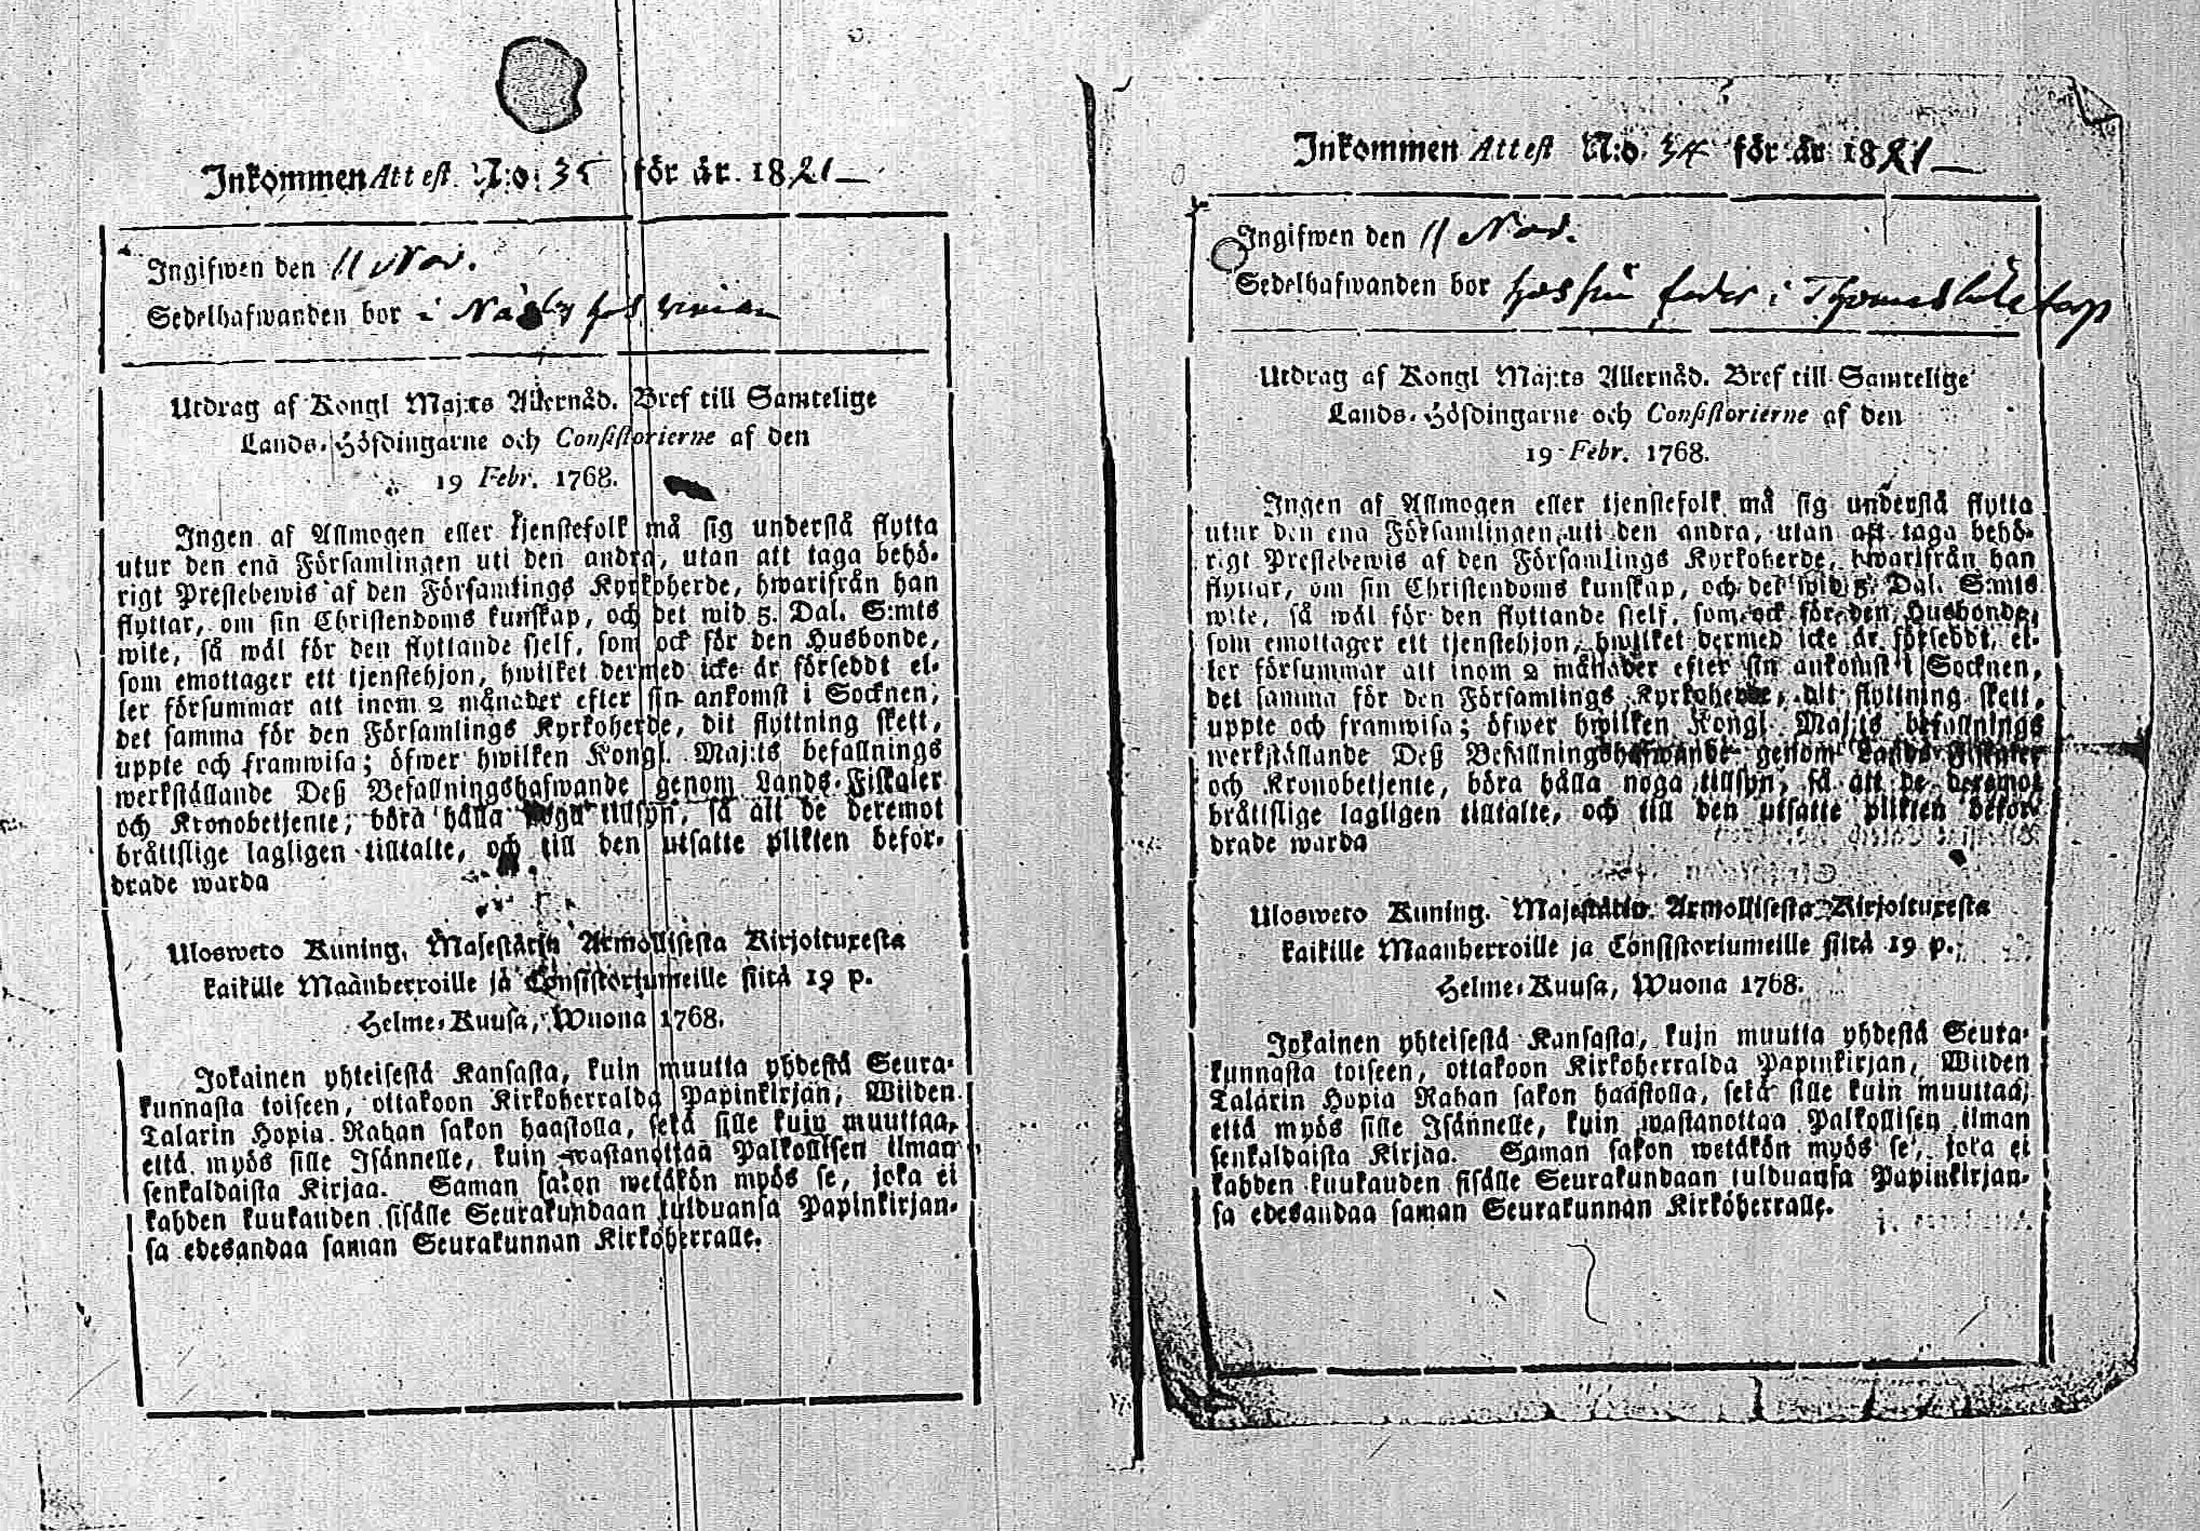 Inkommen Attest N:o. 35 för år. 1821
Ingifwen den 11 Nov.
Sedelhafwanden bor i hos
Utdrag af Kongl Maj:ts Allernåd. Bref till Samtelige
Lands-Höfdingarne och Consistorierne af den
19 Febr. 1768.
Ingen af Allmogen eller tjenstefolk må sig understå flytta
utur den ena Församlingen uti den andra, utan att taga behö-
rigt Prestebewis af den Församlings Kyrkoherde, hwarifrån han
flyttar, om sin Christendoms kunskap, och det wid 5. Dal. S:mts
wite, så wäl för den flyttande sjelf, som ock för den Husbonde,
som emottager ett tjenstehjon, hwilket dermed icke är försedt el-
ler försummar att inom 2 månader efter sin ankomst i Socknen,
det samma för den Församlings Kyrkoherde, dit flyttning skett,
uppte och framwisa; öfwer hwilken Kongl. Maj:ts befallnings
werkställande Deß Befallningshafwande genom Lands-Fiskaler
och Kronobetjente, böra hålla noga tillsyn, så att de deremot
bråttslige lagligen tilltalte, och till den utsatte plikten befor-
drade warda
Ulosweto Kuning. Majestätin Armollisesta Kirjoituxesta
kaikille Maanherroille ja Consistoriumeille siitä 19 p.
Helme-Kuusa, Wuona 1768.
Jokainen yhteisestä Kansasta, kuin muutta yhdestä Seura-
kunnasta toiseen, ottakoon Kirkoherralda Papinkirjan, Wiiden
Talarin Hopia Rahan sakon haastolla, sekä sille kuin muuttaa,
että myös sille Isännelle, kuin wastanottaa Palkollisen ilman
senkaldaista Kirjaa. Saman sakon wetäkön myös se, joka ei
kahden kuukauden sisälle Seurakundaan tulduansa Papinkirjan-
sa edesandaa saman Seurakunnan Kirkoherralle.
Inkommen Attest N:o. 34 för år 1821
Ingifwen den 11 Nov.
Sedelhafwanden bor hos sin fader i torp
Utdrag af Kongl Maj:ts Allernåd. Bref till Samtelige
Lands-Höfdingarne och Consistorierne af den
19 Febr. 1768.
Ingen af Allmogen eller tjenstefolk må sig understå flytta
utur den ena Församlingen uti den andra, utan att taga behö-
rigt Prestebewis af den Församlings Kyrkoherde, hwarifrån han
flyttar, om sin Christendoms kunskap, och det wid 5. Dal. S:mts
wite, så wäl för den flyttande sjelf, som ock för den Husbonde,
som emottager ett tjenstehjon, hwilket dermed icke är försedt, el-
ler försummar att inom 2 månader efter sin ankomst i Socknen,
det samma för den Församlings Kyrkoherde, dit flyttning skett,
uppte och framwisa; öfwer hwilken Kongl. Maj:ts befallnings
werkställande Deß Befallningshafwande genom Lands-Fiskaler
och Kronobetjente, böra hålla noga tillsyn, så att de deremot
bråttslige lagligen tilltalte, och till den utsatte plikten befor-
drade warda
Ulosweto Kuning. Majestätin Armollisesta Kirjoituxesta
kaikille Maanherroille ja Consistoriumeille siitä 19 p.
Helme-Kuusa, Wuona 1768.
Jokainen yhteisestä Kansasta, kuin muutta yhdestä Seura-
kunnasta toiseen, ottakoon Kirkoherralda Papinkirjan, Wiiden
Talarin Hopia Rahan sakon haastolla, sekä sille kuin muuttaa,
että myös sille Isännelle, kuin wastanottaa Palkollisen ilman
senkaldaista Kirjaa. Saman sakon wetäkön myös se, joka ei
kahden kuukauden sisälle Seurakundaan tulduansa Papinkirjan-
sa edesandaa saman Seurakunnan Kirkoherralle.